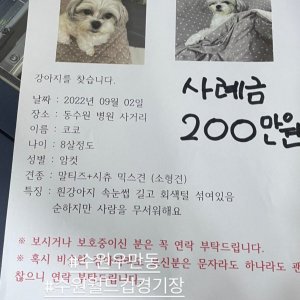 강아지를 찾습니다.
사례금
200만원
날짜 : 2022년 09월 02일
장소 : 동수원 병원 사거리
이름 : 코코
나이 : 8살정도
성별 : 암컷
견종 : 말티즈+시츄 믹스견 (소형견)
특징 : 흰강아지 속눈썹 길고 회색털 섞여있음
순하지만 사람을 무서워해요
※ 보시거나 보호중이신 분은 꼭 연락 부탁드립니다.
#수원우만동
※ 혹시 비슷한 신분은 문자라도 하나라도 괜
찮으니 연락 부탁드립니다.
#수원월드컵경기장